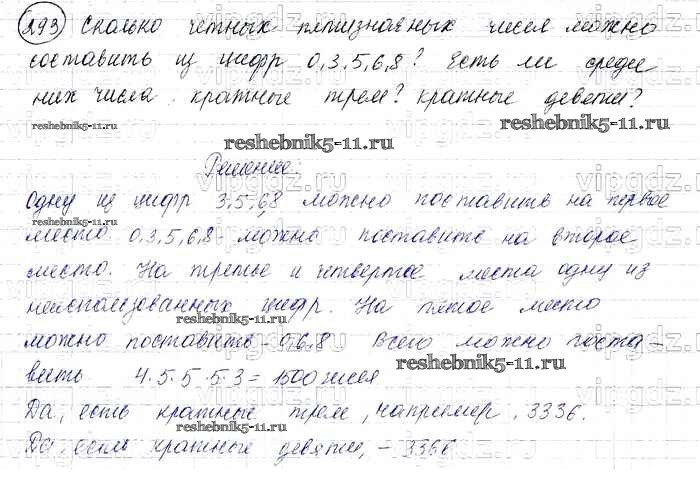 293 Сколько четных пятизначных чисел можно
составить из цифр 0,3,5,6,8? Есть ли среди
них числа кратные трем? кратные девяти?
reshebnik5-11.ru
reshebnik5-11.ru
reshebnik5-11.ru
Решение:
Одну из цифр 3,5,6,8 можно поставить на первое
место. 0,3,5,6,8 - можно поставить на второе
место. На третье и четвертое места одну из
неиспользованных цифр. На пятое место
reshebnik5-11.ru
можно поставить - 0,6,8 Всего можно поста-
reshebnik5-11.ru
вить 4·5·5·5·3=1500 чисел
Да, есть кратные трем, например, 3336.
reshebnik5-11.ru
Да, есть кратные девяти, - 3366